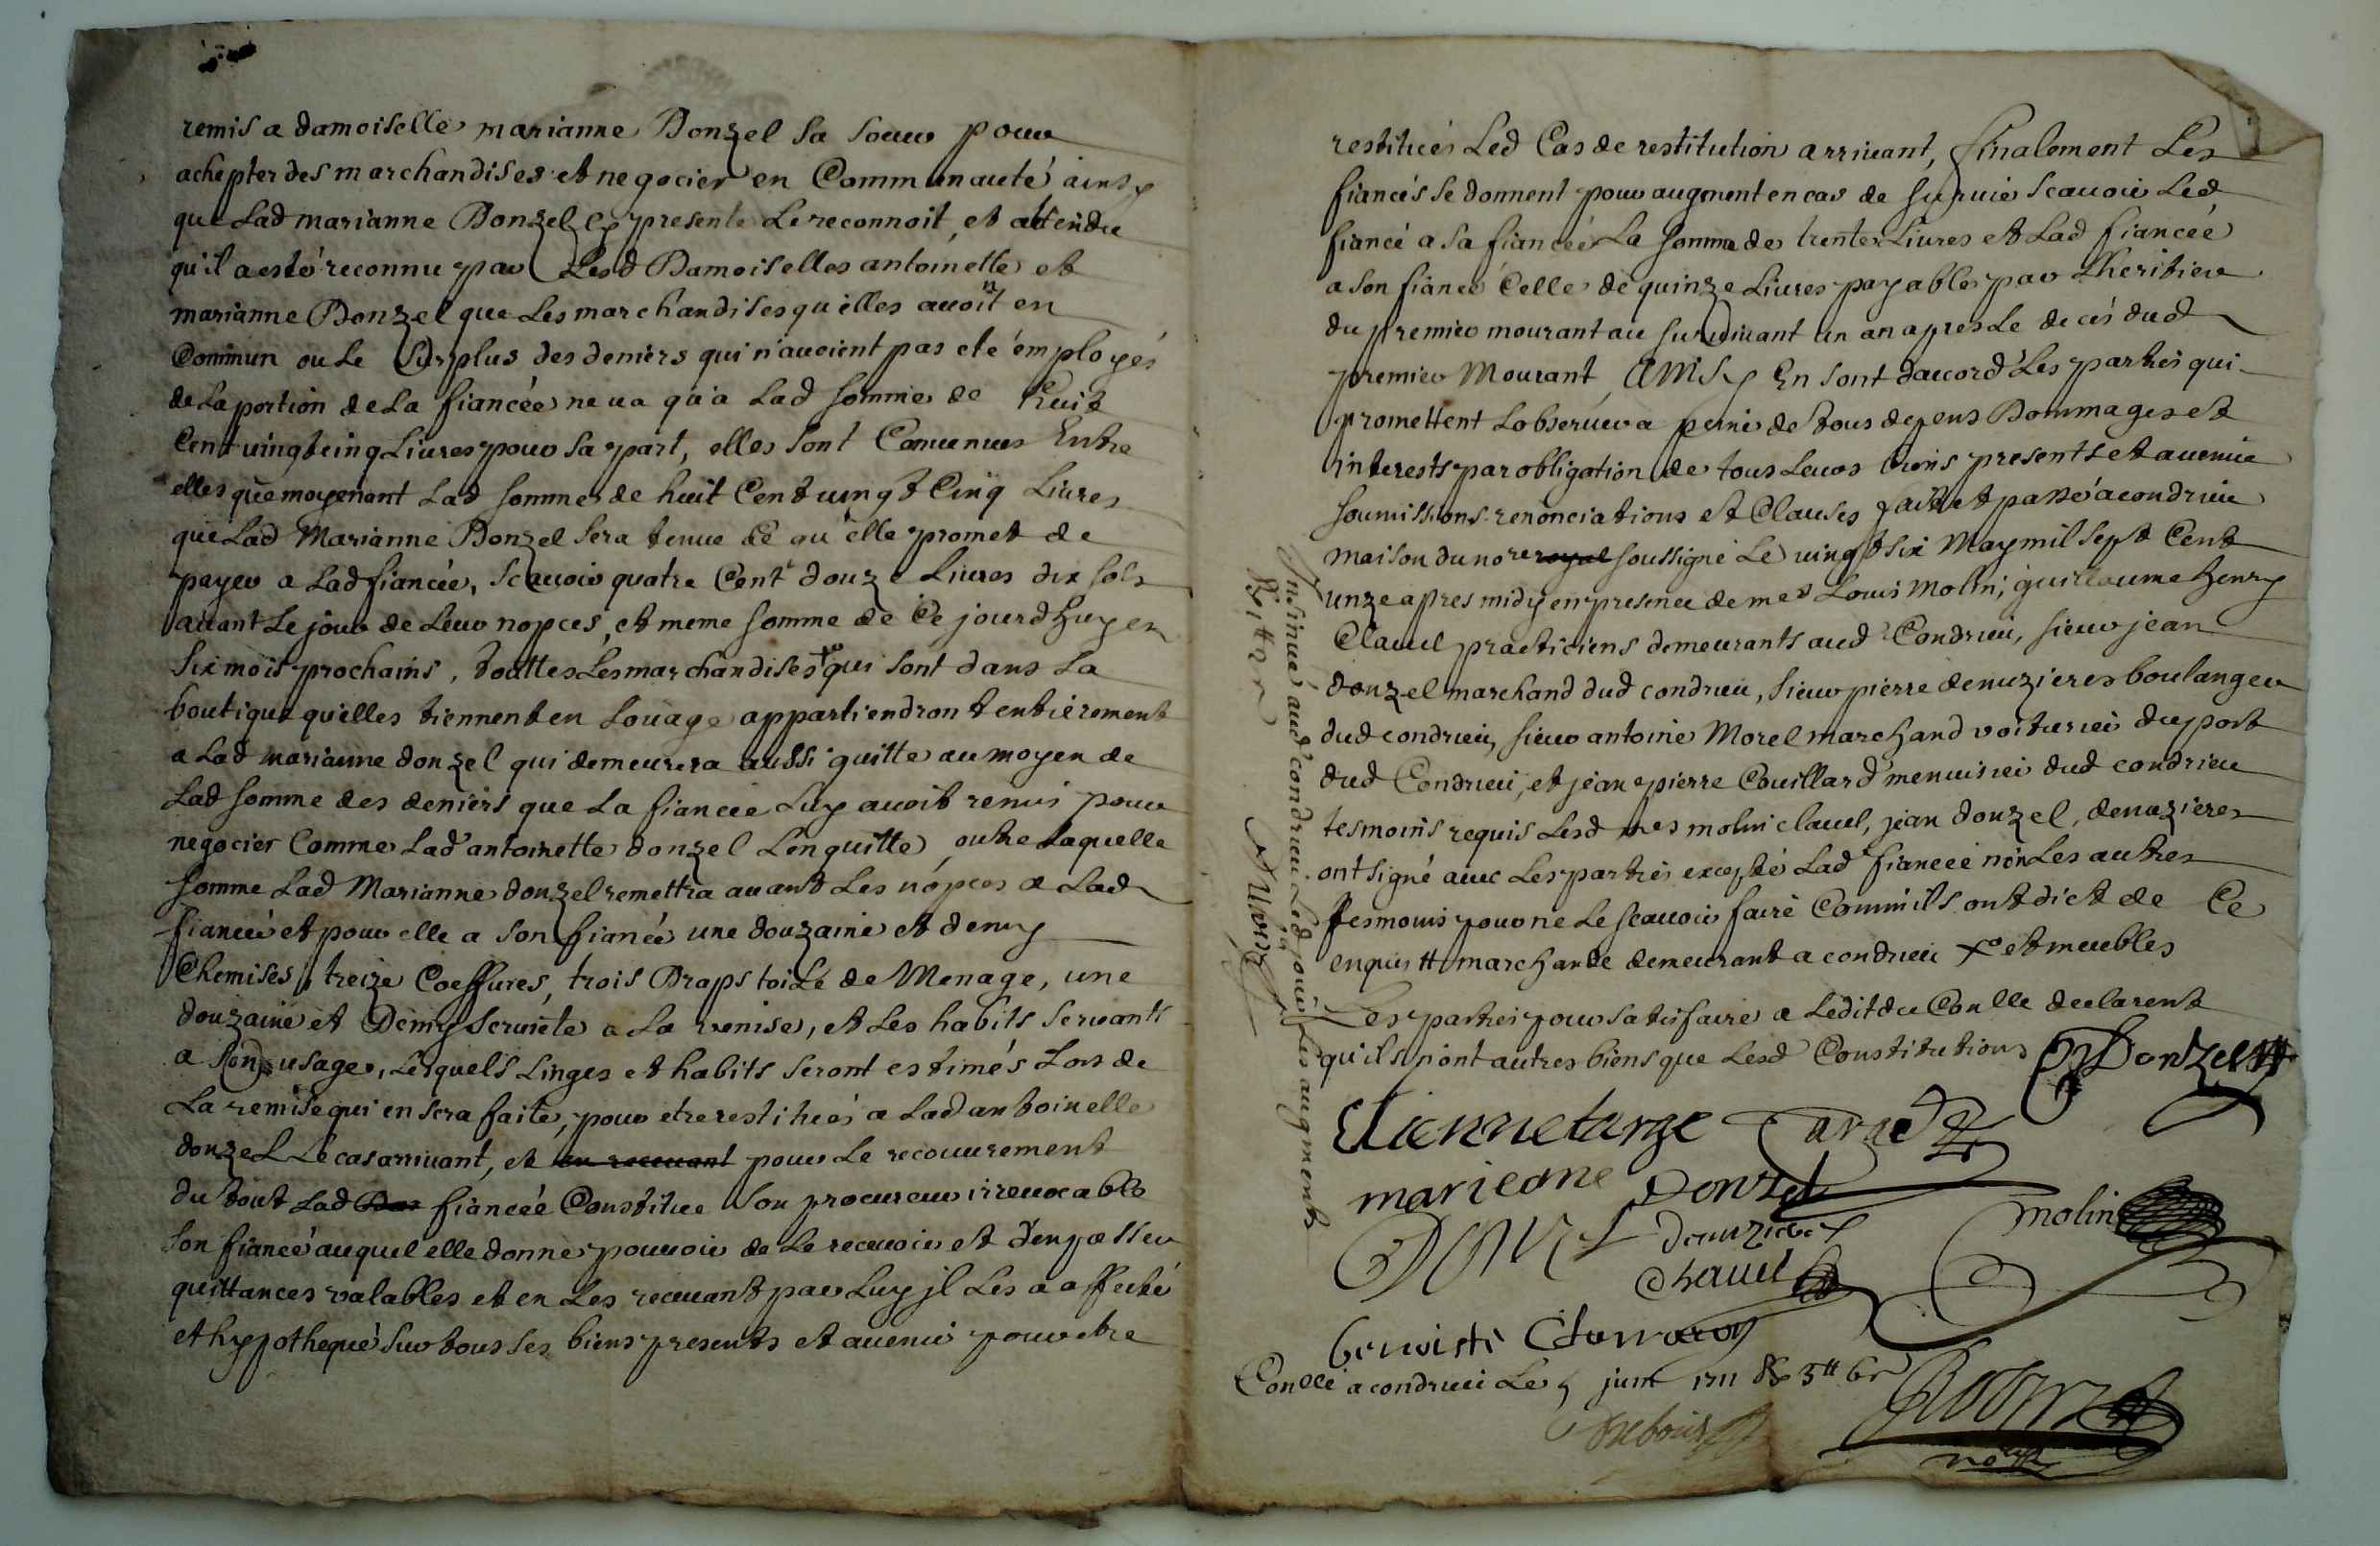 remis a damoiselle marianne Donzel sa soeur pour
achepter des marchandises et negocier en Communauté ainsy
que Lad marianne Donzel cy presente Le reconnoit, et attendu
qu'il a esté reconnu par Lesd Damoiselles antoinette et
marianne Donzel que Les marchandises qu'elles avoint en
Commun ou Le surplus des deniers qui n'avoient pas eté employés
de La portion de La fiancée ne va qu'a Lad somme de huit
Cent vingt cinq Livres pour sa part, elles sont Convenues Entre
elles que moyenant Lad somme de huit Cent vingt Cinq Livres
que Lad Marianne Donzel sera tenue Ce qu'elle promet de
payer a Lad fiancée, scavoir quatre Cent douze Livres dix sols
avant Le jour de Leur nopces, et meme somme de Ce jourdhuy en
six mois prochains, touttes Les marchandises qui sont dans La
boutique qu'elles tiennent en Louage appartiendront entierement
a Lad marianne donzel qui demeurera aussi quitte au moyen de
Lad somme des deniers que La fiancée Luy avoit remis pour
negocier Comme Lad antoinette donzel L'en quitte, outre Laquelle
somme Lad Marianne donzel remettra avant Les nopces a Lad
fiancée et pour elle a son fiancé une douzaine et demy
Chemises, treize Coeffures, trois Draps toile de Menage, une
douzaine et Demy serviete a La venise, et Les habits servants
a son usage, Lesquels Linges et habits seront estimés Lors de
La remise qui en sera faite, pour etre restitués a Lad antoinette
donzel Le cas arrivant, et en recevant pour Le recouvrement
du tout Lad fiancée Constitue son procureur irrevocable
son fiancé auquel elle donne pouvoir de Le recevoir et d'en passer
quittances valables et en Les recevant par Luy jl Les a affecté
et hypothequé sur tous ses biens presents et avenir pour etre
restitués Led Cas de restitution arrivant, finalement Les
fiancés se donnent pour augment en cas de survie scavoir Led
fiancé a sa fiancée La somme de trente Livres et Lad fiancée
a son fiancé Celle de quinze Livres payables par L'heritier
du premier mourant au survivant un an apres Le decés dud
premier Mourant, Ainsy En sont d'accord Les parties qui
promettent L'observer a peine de tous depens Dommages et
interests par obligation de tous Leurs biens presents et avenir
soumissions renonciations et Clauses fait et passé a condrieu
maison du nore royal soussigné Le vingt six May mil sept Cent
unze apres midy en presence de mes Louis Molin, guillaume henry
Clavel practiciens demeurants aud Condrieu, sieur jean
donzel marchand dud condrieu, sieur pierre denuzieres boulanger
dud condrieu, sieur antoine Morel marchand voiturier du port
dud Condrieu, et jean pierre Couillard menuisier dud condrieu
tesmoins requis Lesd mes molin clavel, jean donzel, denuzieres
ont signé avec Les parties excepté Lad fiancée n'en Les autres
tesmoins pour ne Le scavoir faire Comm'ils ont dict de Ce
enquis # marchande demeurant a condrieu xº et meubles
Les parties pour satisfaire a L'edit du Conlle declarent
qu'ils n'ont autres biens que Lesd Constitutions Donzel
Etienne targe Targe
marieane Donzel
denuzieres
molin
Clavel
benoiste
Conllé a condrieu Le 5 juin 1711 R 3tt 6s
nore
Insinué aud condrieu Led jour Les augments